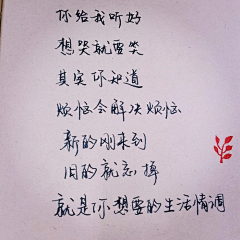 你给我听好
想哭就要笑
其实你知道
烦恼会解决烦恼
新的刚来到
旧的就忘掉
就是你想要的生活情调